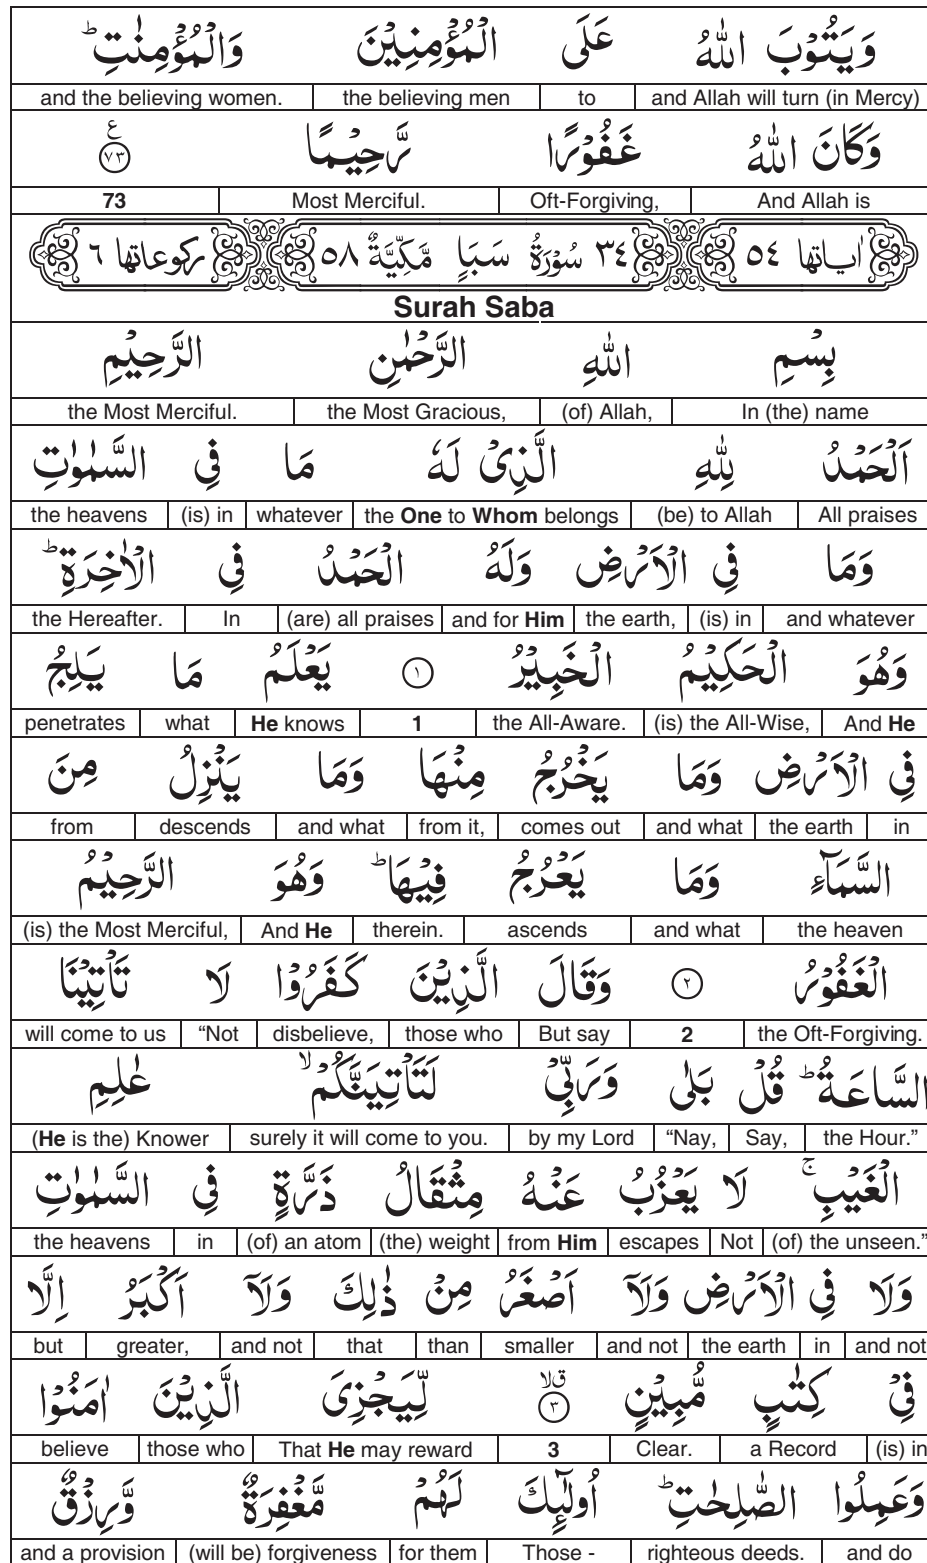 وَيَتُوۡبَ اللّٰهُ عَلَى الۡمُؤۡمِنِيۡنَ وَالۡمُؤۡمِنٰتِ ؕ
and the believing women. the believing men to and Allah will turn (in Mercy)
وَكَانَ اللّٰهُ غَفُوۡرًا رَّحِيۡمًا ع ۝٧٣
73 Most Merciful. Oft-Forgiving, And Allah is
اٰياتها ٥٤ ٣٤ سُوۡرَةُ سَبَاٍ مَّكِّيَّةٌ ٥٨ ركوعاتها ٦
Surah Saba
بِسۡمِ اللّٰهِ الرَّحۡمٰنِ الرَّحِيۡمِ
the Most Merciful. the Most Gracious, (of) Allah, In (the) name
اَلۡحَمۡدُ لِلّٰهِ الَّذِىۡ لَهٗ مَا فِى السَّمٰوٰتِ
the heavens (is) in whatever the One to Whom belongs (be) to Allah All praises
وَمَا فِى الۡاَرۡضِ وَلَهُ الۡحَمۡدُ فِى الۡاٰخِرَةِ ؕ
the Hereafter. In (are) all praises and for Him the earth, (is) in and whatever
وَهُوَ الۡحَكِيۡمُ الۡخَبِيۡرُ ۝١ يَعۡلَمُ مَا يَلِجُ
penetrates what He knows 1 the All-Aware. (is) the All-Wise, And He
فِى الۡاَرۡضِ وَمَا يَخۡرُجُ مِنۡهَا وَمَا يَنۡزِلُ مِنَ
from descends and what from it, comes out and what the earth in
السَّمَآءِ وَمَا يَعۡرُجُ فِيۡهَا ؕ وَهُوَ الرَّحِيۡمُ
(is) the Most Merciful, And He therein. ascends and what the heaven
الۡغَفُوۡرُ ۝٢ وَقَالَ الَّذِيۡنَ كَفَرُوۡا لَا تَاۡتِيۡنَا
will come to us “Not disbelieve, those who But say 2 the Oft-Forgiving.
السَّاعَةُ ؕ قُلۡ بَلٰى وَرَبِّىۡ لَتَاۡتِيَنَّكُمۡ ۙ عٰلِمِ
(He is the) Knower surely it will come to you. by my Lord “Nay, Say, the Hour.”
الۡغَيۡبِ ۚ لَا يَعۡزُبُ عَنۡهُ مِثۡقَالُ ذَرَّةٍ فِى السَّمٰوٰتِ
the heavens in (of) an atom (the) weight from Him escapes Not (of) the unseen.”
وَلَا فِى الۡاَرۡضِ وَلَاۤ اَصۡغَرُ مِنۡ ذٰلِكَ وَلَاۤ اَكۡبَرُ اِلَّا
but greater, and not that than smaller and not the earth in and not
فِىۡ كِتٰبٍ مُّبِيۡنٍ ۝٣ قلا لِّيَجۡزِىَ الَّذِيۡنَ اٰمَنُوۡا
believe those who That He may reward 3 Clear. a Record (is) in
وَعَمِلُوا الصّٰلِحٰتِ ؕ اُولٰٓئِكَ لَهُمۡ مَّغۡفِرَةٌ وَّرِزۡقٌ
and a provision (will be) forgiveness for them Those - righteous deeds. and do